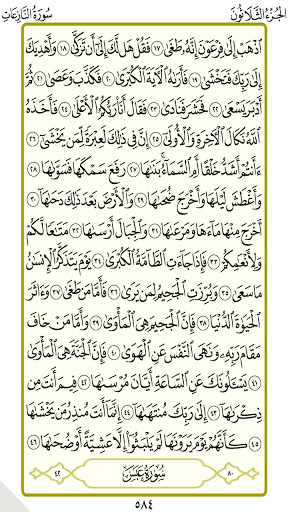 الجُزءُ الثَّلَاثُونَ
سُورَةُ النَّازِعَاتِ
ٱذۡهَبۡ إِلَىٰ فِرۡعَوۡنَ إِنَّهُۥ طَغَىٰ ١٧ فَقُلۡ هَل لَّكَ إِلَىٰٓ أَن تَزَكَّىٰ ١٨ وَأَهۡدِيَكَ
إِلَىٰ رَبِّكَ فَتَخۡشَىٰ ١٩ فَأَرَىٰهُ ٱلۡأٓيَةَ ٱلۡكُبۡرَىٰ ٢٠ فَكَذَّبَ وَعَصَىٰ ٢١ ثُمَّ
أَدۡبَرَ يَسۡعَىٰ ٢٢ فَحَشَرَ فَنَادَىٰ ٢٣ فَقَالَ أَنَا۠ رَبُّكُمُ ٱلۡأَعۡلَىٰ ٢٤ فَأَخَذَهُ
ٱللَّهُ نَكَالَ ٱلۡأٓخِرَةِ وَٱلۡأُولَىٰٓ ٢٥ إِنَّ فِي ذَٰلِكَ لَعِبۡرَةٗ لِّمَن يَخۡشَىٰٓ ٢٦
ءَأَنتُمۡ أَشَدُّ خَلۡقًا أَمِ ٱلسَّمَآءُۚ بَنَىٰهَا ٢٧ رَفَعَ سَمۡكَهَا فَسَوَّىٰهَا ٢٨
وَأَغۡطَشَ لَيۡلَهَا وَأَخۡرَجَ ضُحَىٰهَا ٢٩ وَٱلۡأَرۡضَ بَعۡدَ ذَٰلِكَ دَحَىٰهَآ ٣٠
أَخۡرَجَ مِنۡهَا مَآءَهَا وَمَرۡعَىٰهَا ٣١ وَٱلۡجِبَالَ أَرۡسَىٰهَا ٣٢ مَتَٰعٗا لَّكُمۡ
وَلِأَنۡعَٰمِكُمۡ ٣٣ فَإِذَا جَآءَتِ ٱلطَّآمَّةُ ٱلۡكُبۡرَىٰ ٣٤ يَوۡمَ يَتَذَكَّرُ ٱلۡإِنسَٰنُ
مَا سَعَىٰ ٣٥ وَبُرِّزَتِ ٱلۡجَحِيمُ لِمَن يَرَىٰ ٣٦ فَأَمَّا مَن طَغَىٰ ٣٧ وَءَاثَرَ
ٱلۡحَيَوٰةَ ٱلدُّنۡيَا ٣٨ فَإِنَّ ٱلۡجَحِيمَ هِيَ ٱلۡمَأۡوَىٰ ٣٩ وَأَمَّا مَنۡ خَافَ
مَقَامَ رَبِّهِۦ وَنَهَى ٱلنَّفۡسَ عَنِ ٱلۡهَوَىٰ ٤٠ فَإِنَّ ٱلۡجَنَّةَ هِيَ ٱلۡمَأۡوَىٰ
٤١ يَسۡـَٔلُونَكَ عَنِ ٱلسَّاعَةِ أَيَّانَ مُرۡسَىٰهَا ٤٢ فِيمَ أَنتَ مِن
ذِكۡرَىٰهَآ ٤٣ إِلَىٰ رَبِّكَ مُنتَهَىٰهَآ ٤٤ إِنَّمَآ أَنتَ مُنذِرُ مَن يَخۡشَىٰهَا
٤٥ كَأَنَّهُمۡ يَوۡمَ يَرَوۡنَهَا لَمۡ يَلۡبَثُوٓاْ إِلَّا عَشِيَّةً أَوۡ ضُحَىٰهَا ٤٦
٨٠ سُورَةُ عَبَسَ ٤٢
٥٨٤